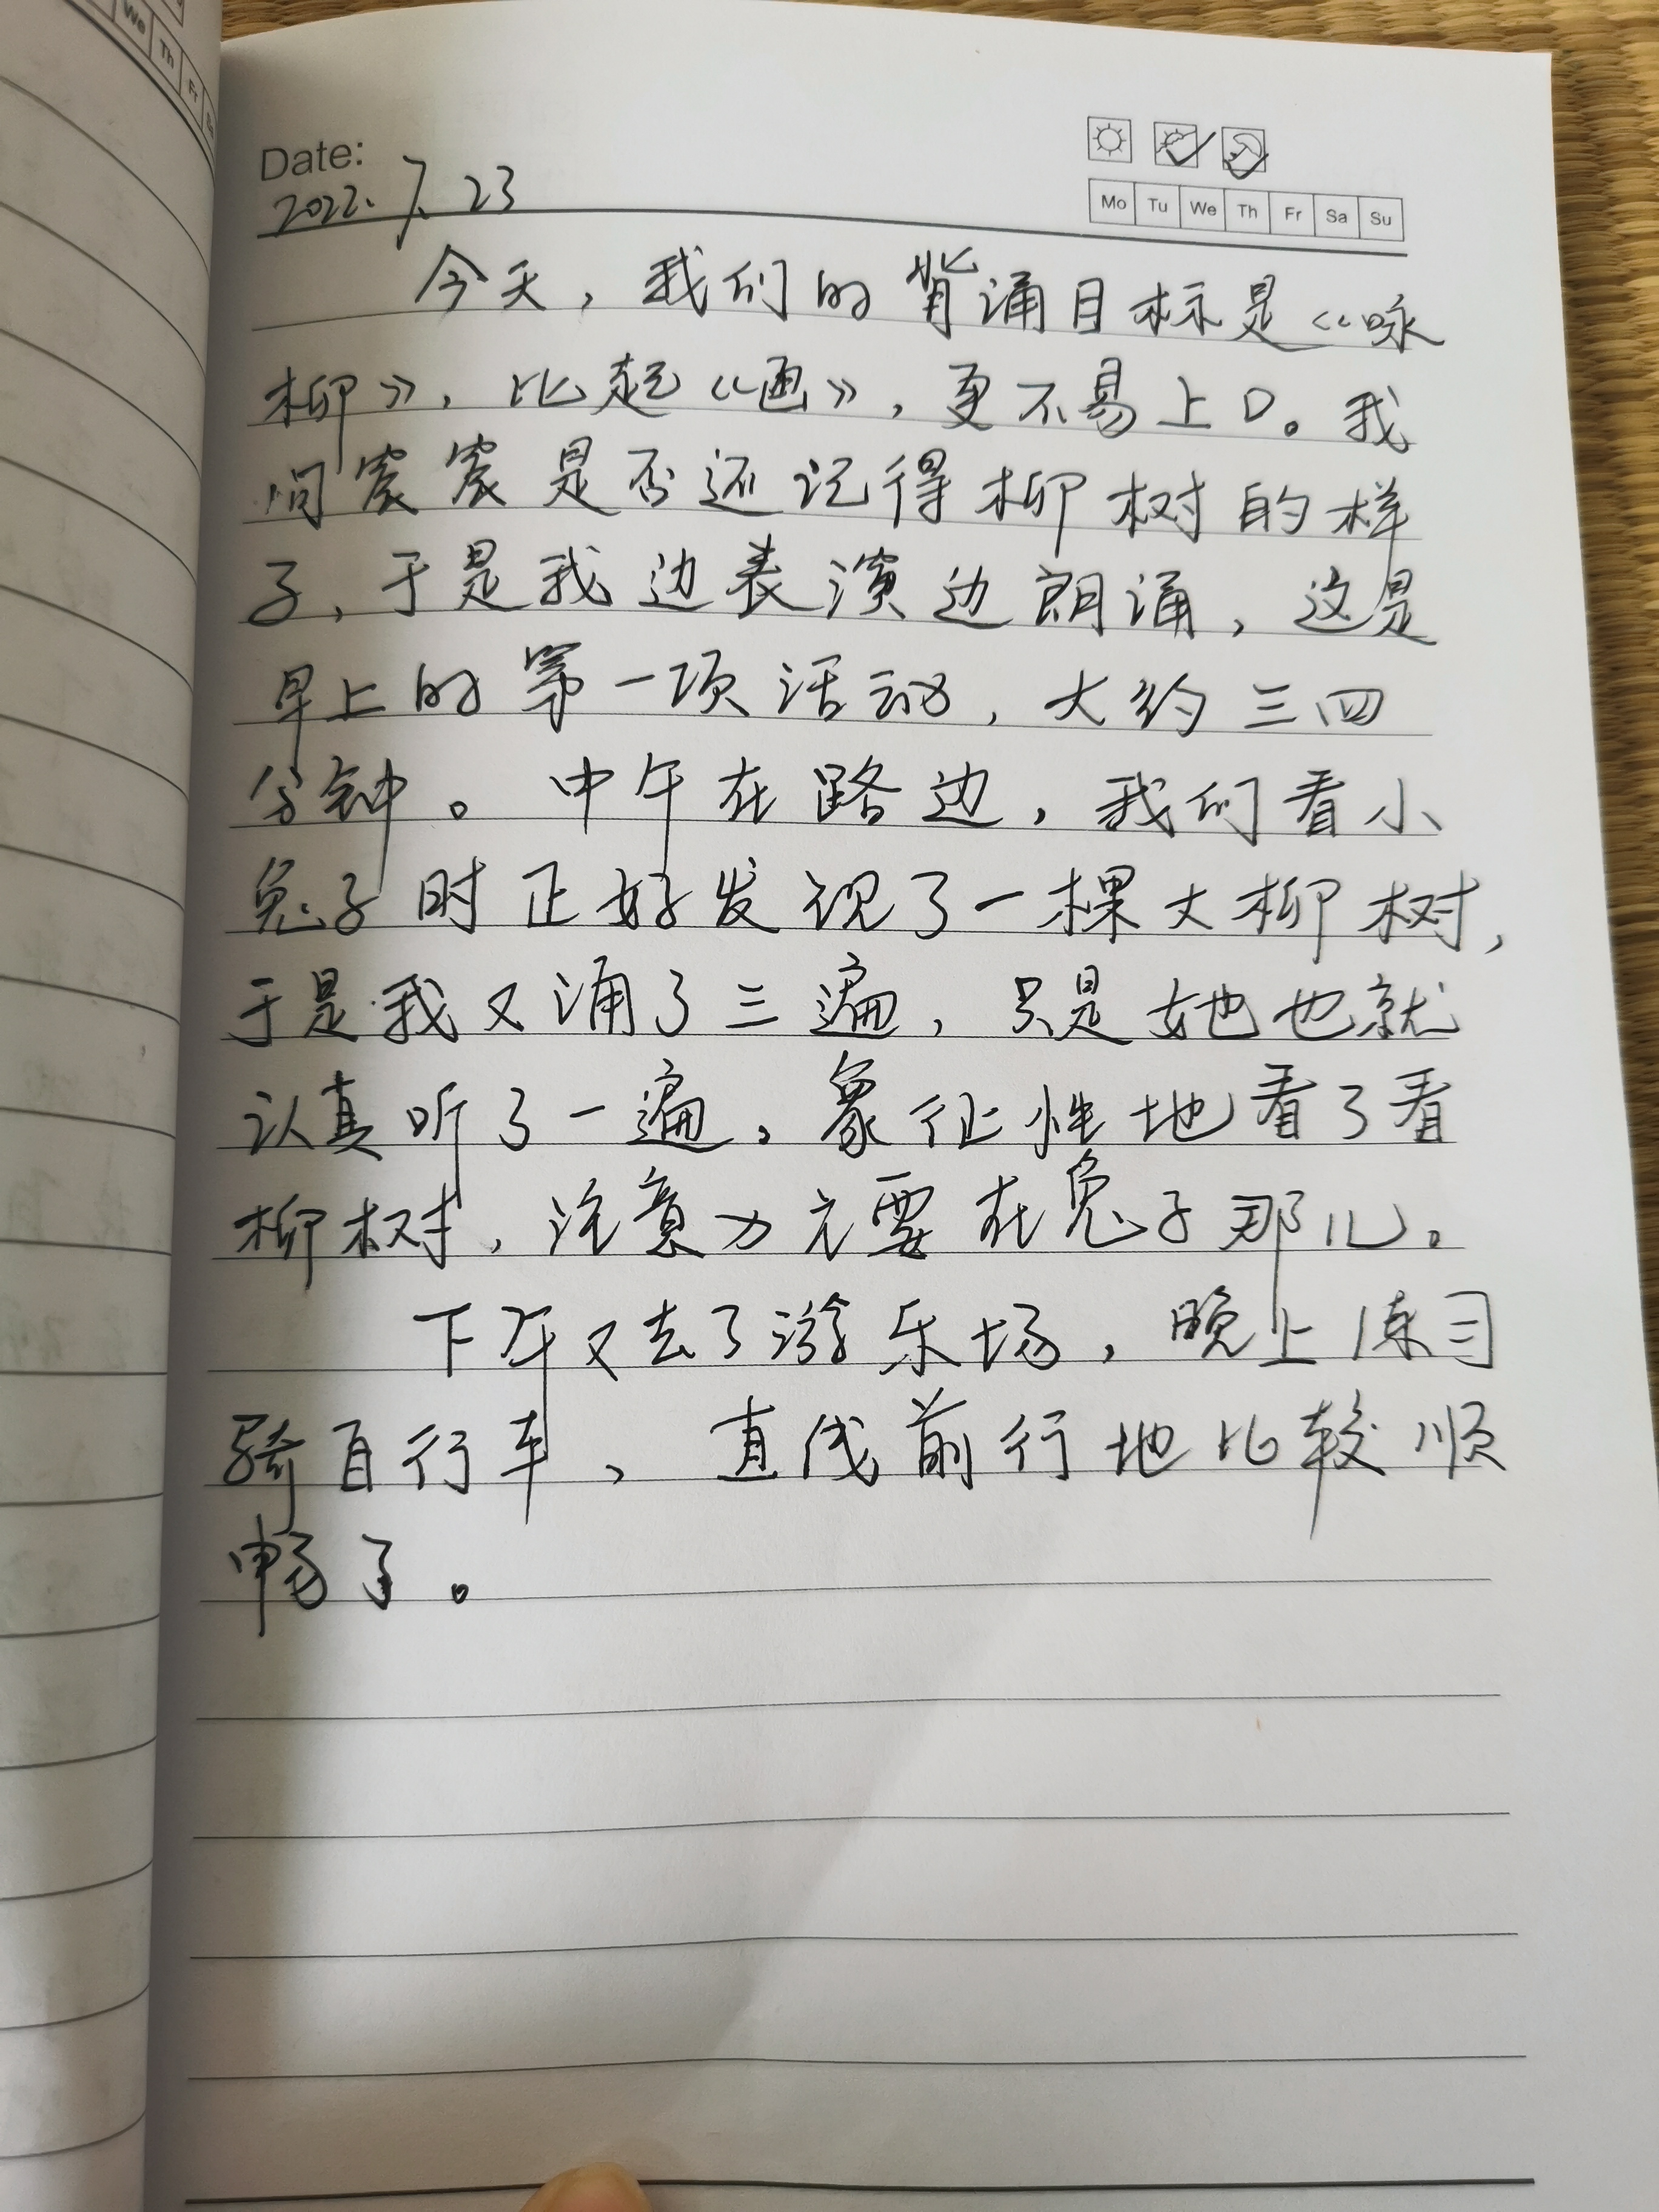 We Th Fr Sa
Date:
2022.7.23
Mo Tu We Th Fr Sa Su
今天，我们的背诵目标是《咏
柳》，比起《画》，更不易上口。我
问宸宸是否还记得柳树的样
子，于是我边表演边朗诵，这是
早上的第一项活动，大约三四
分钟。中午在路边，我们看小
兔子时正好发现了一棵大柳树，
于是我又诵了三遍，只是她也就
认真听了一遍，象征性地看了看
柳树，注意力主要在兔子那儿。
下午又去了游乐场，晚上练习
骑自行车，直线前行地比较顺
畅了。